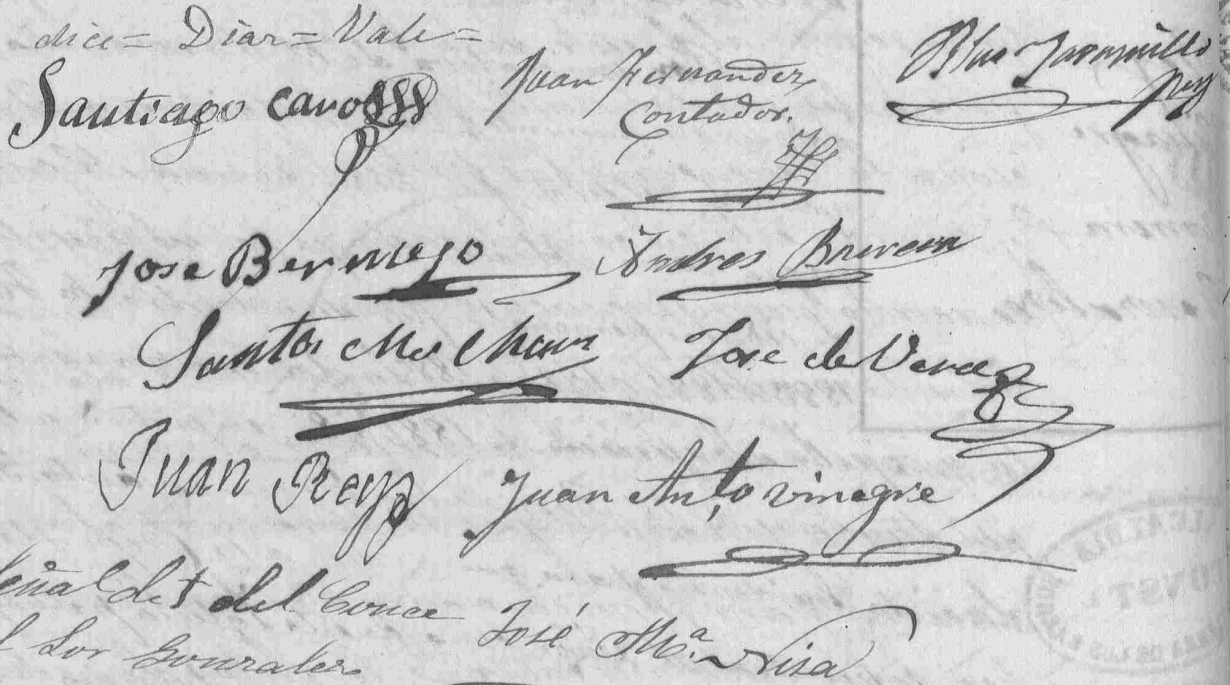 dice = Diar = Vale =
Santiago Caro
Juan Fernandez
Contador.
Blas Jaramillo
Jose Bermejo
Andres
Santos
Jose de Vera
Juan Rey
Juan Anto vinagre
Señal de † del Conce
l Sor Gonzales
José Mª Nisa